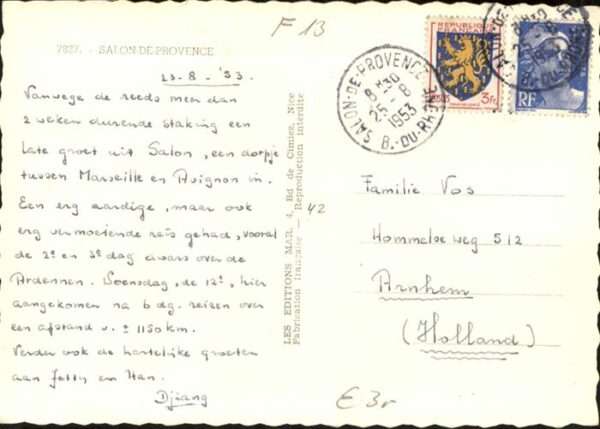 F 13
7827. - SALON-DE-PROVENCE
23-8-'53
Vanwege de reeds meer dan
2 weken durende staking een
late groet uit Salon, een dorpje
tussen Marseille en Avignon in.
Een erg aardige, maar ook
erg vermoeiende reis gehad, vooral
de 2e en 3e dag dwars over de
Ardennen. Woensdag, de 12e, hier
aangekomen na 6 dg. reizen over
een afstand v. ± 1150 km.
Verder ook de hartelijke groeten
aan Jetty en Han.
Djiang
LES EDITIONS MAR, 4, Bd de Cimiez, Nice
Fabrication française — Reproduction interdite
42
REPUBLIQUE
FRANÇAISE
3fr.
RF
SALON-DE-PROVENCE
8H30
25-8
1953
B.-DU-RHONE
Familie Vos
Hommelseweg 512
Arnhem
(Holland)
E 3r